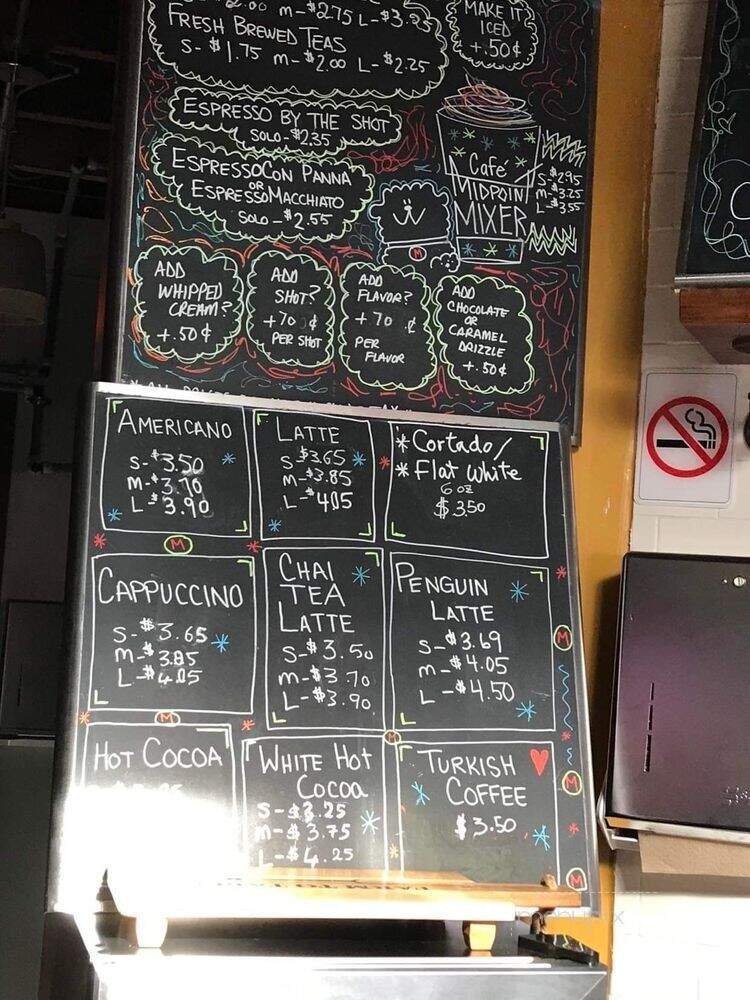 M-$2.75 L-$3.25
FRESH BREWED TEAS
S-$1.75 M-$2.00 L-$2.25
MAKE IT
ICED
+.50¢
ESPRESSO BY THE SHOT
SOLO-$2.35
ESPRESSO CON PANNA
OR
ESPRESSO MACCHIATO
SOLO-$2.55
Café
MIDPOINT
MIXER
S-$2.95
M-$3.25
L-$3.55
M
ADD
WHIPPED
CREAM?
+.50¢
ADD
SHOT?
+70¢
PER SHOT
ADD
FLAVOR?
+.70¢
PER
FLAVOR
ADD
CHOCOLATE
OR
CARAMEL
DRIZZLE
+.50¢
AMERICANO
S-$3.50
M-$3.70
L-$3.90
LATTE
S-$3.65
M-$3.85
L-$4.05
*Cortado/
*Flat White
6 oz
$3.50
M
CAPPUCCINO
S-$3.65
M-$3.85
L-$4.05
CHAI
TEA
LATTE
S-$3.50
M-$3.70
L-$3.90
PENGUIN
LATTE
S-$3.69
M-$4.05
L-$4.50
M
M
M
HOT COCOA
WHITE HOT
COCOA
S-$3.25
M-$3.75
L-$4.25
TURKISH
COFFEE
$3.50
M
M